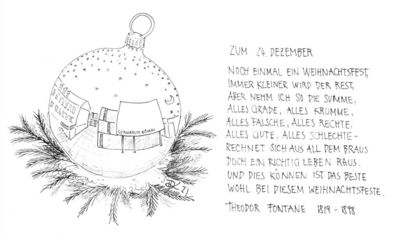 ZUM 24. DEZEMBER
NOCH EINMAL EIN WEIHNACHTSFEST,
IMMER KLEINER WIRD DER REST,
ABER NEHM ICH SO DIE SUMME,
ALLES GRADE, ALLES KRUMME,
ALLES FALSCHE, ALLES RECHTE,
ALLES GUTE, ALLES SCHLECHTE-
RECHNET SICH AUS ALL DEM BRAUS
DOCH EIN RICHTIG LEBEN RAUS.
UND DIES KÖNNEN IST DAS BESTE
WOHL BEI DIESEM WEIHNACHTSFESTE.
THEODOR FONTANE 1819 - 1898